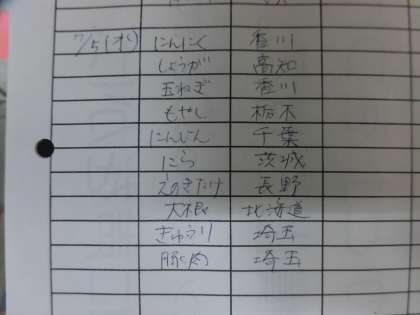 7/5(水) にんにく 香川
しょうが 高知
玉ねぎ 香川
もやし 栃木
にんじん 千葉
にら 茨城
えのきたけ 長野
大根 北海道
きゅうり 埼玉
豚肉 埼玉